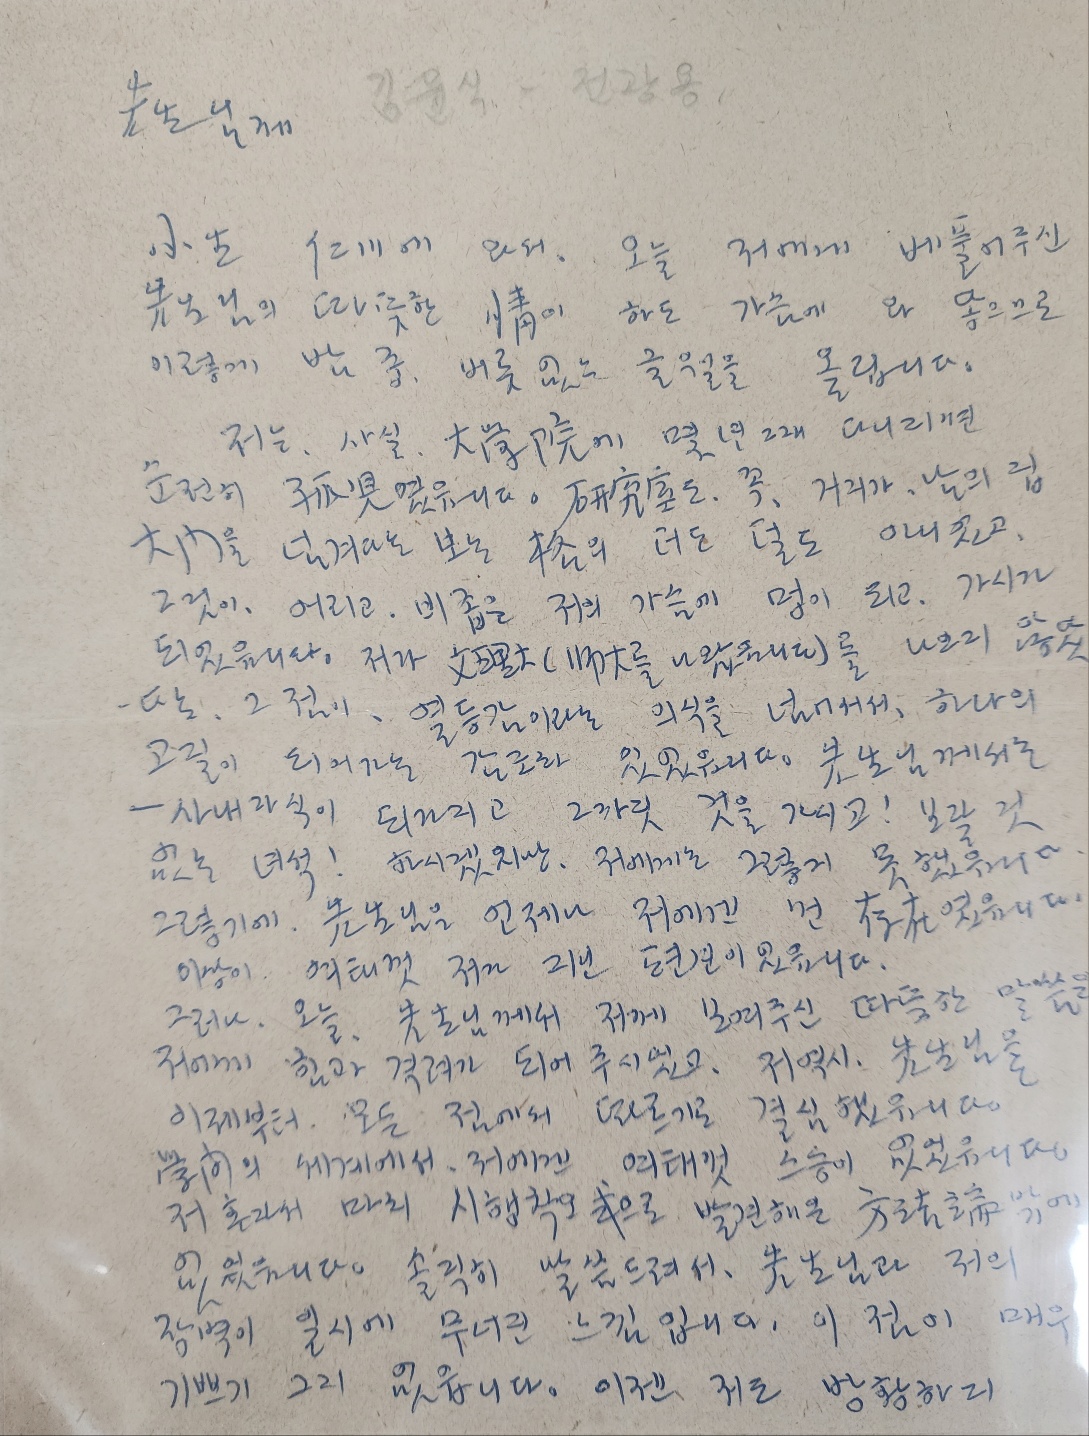 김윤식 - 전광용
先生님께
小生 仁川에 와서, 오늘 저에게 베풀어주신
先生님의 따뜻한 情이 하도 가슴에 와 좋으므로
이렇게 밤 중, 버릇 없는 글월을 올립니다.
저는, 사실, 大學院에 몇년그래 다니리면
순전히 孤児였읍니다. 研究室도, 꼭, 거리가, 남의 립
大門을 넘겨다 보는 格의 더도 덜도 아니였고,
그것이, 어리고, 비좁은 저의 가슴에 멍이 되고, 가시가
되었읍니다. 저가 文理大(師大를 나왔읍니다)를 나오지 않았
다는, 그 점이, 열등감이라는 의식을 넘어서서, 하나의
고질이 되어가는 감조차 있었읍니다. 先生님께서는
— 사내자식이 되가지고 그까짓 것을 가지고! 보잘 것
없는 녀석! 하시겠지만, 저에게는 그렇지 못했읍니다.
그렇기에, 先生님은 언제나 저에겐 먼 存在였읍니다.
이상이, 여태껏 저가 지닌 도편견이었읍니다.
그러나, 오늘, 先生님께서 저께 보여주신 따뜻한 말씀은
저에게 힘과 격려가 되어 주시었고, 저역시, 先生님을
이제부터, 모든 점에서 따르기로 결심했읍니다.
學問의 세계에서, 저에겐 여태껏 스승이 없었읍니다.
저 혼자서 마치 시행착오式으로 발견해온 方法論밖에
없었읍니다. 솔직히 말씀드려서, 先生님과 저의
장벽이 일시에 무너진 느낌입니다. 이 점이 매우
기쁘기 그지 없읍니다. 이젠 저도 방황하지